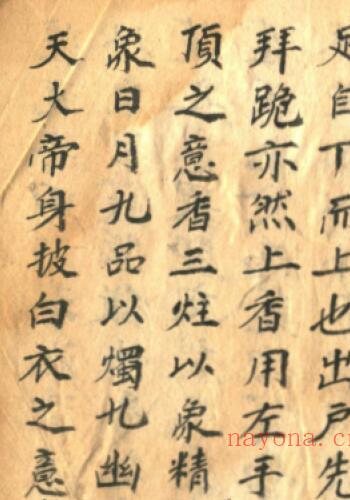 足自下而上也出戶先
拜跪亦然上香用左手
頂之意香三炷以象精
象日月九品以燭九幽
天大帝身披白衣之意
nayona.c